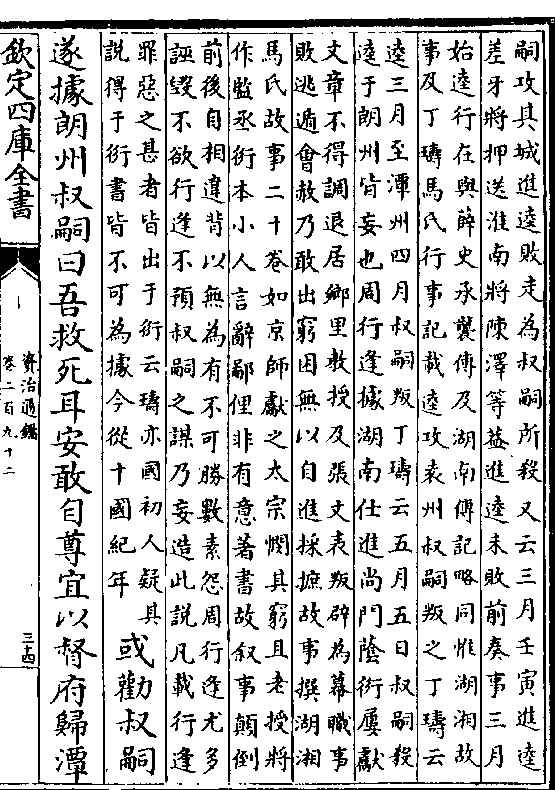 嗣攻其城進逵敗走為叔嗣所殺又云三月壬寅進逵
差牙將押送淮南將陳澤等葢進逵未敗前奏事三月
始達行在與薛史承襲傳及湖南傳記略同惟湖湘故
事及丁璹馬氏行事記載逵攻袁州叔嗣叛之丁璹云
逵三月至潭州四月叔嗣叛丁璹云五月五日叔嗣殺
逵于朗州皆妄也周行逢據湖南仕進尚門蔭衍屢獻
文章不得調退居鄉里教授及張文表叛辟為幕職事
敗逃遁會赦乃敢出窮困無以自進採摭故事撰湖湘
馬氏故事二十卷如京師獻之太宗憫其窮且老授將
作監丞衍本小人言辭鄙俚非有意著書故叙事顛倒
前後自相違背以無為有不可勝數素怨周行逢尤多
誣毀不欲行逢不預叔嗣之謀乃妄造此說凡載行逢
罪惡之甚者皆出于衍云璹亦國初人疑其
說得于衍書皆不可為據今從十國紀年
或勸叔嗣
遂據朗州叔嗣曰吾救死耳安敢自尊宜以督府歸潭
欽定四庫全書
資治通鑑
卷二百九十二
三十四